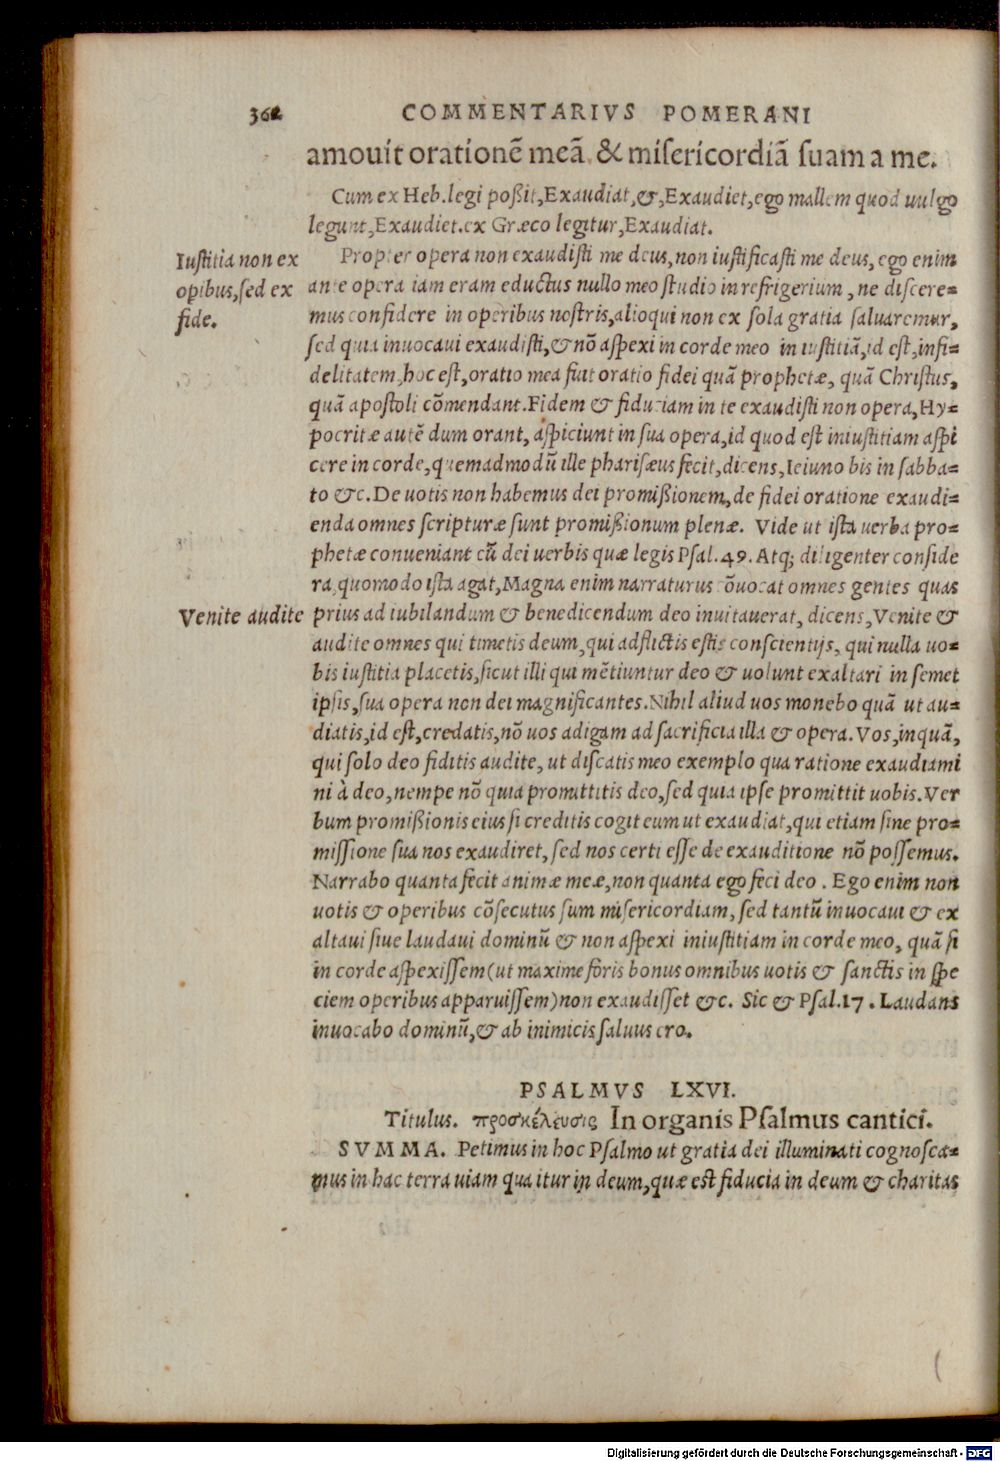 362 COMMENTARIVS POMERANI
amouit orationē meā & misericordiā suam a me.
Cum ex Heb. legi poßit, Exaudiat, &, Exaudiet, ego mallem quod uulgo
legunt, Exaudiet. ex Græco legitur, Exaudiat.
Iustitia non ex
opibus, sed ex
fide.
Propter opera non exaudisti me deus, non iustificasti me deus, ego enim
ante opera iam eram eductus nullo meo studio in refrigerium, ne discere=
mus confidere in operibus nostris, alioqui non ex sola gratia saluaremur,
sed quia inuocaui exaudisti, & nō aspexi in corde meo iniustitiā, id est, infi=
delitatem, hoc est, oratio mea fuit oratio fidei quā prophetæ, quā Christus,
quā apostoli cōmendant. Fidem & fiduciam in te exaudisti non opera, Hy=
pocritæ autē dum orant, aspiciunt in sua opera, id quod est iniustitiam aspi
cere in corde, quemadmodū ille pharisæus fecit, dicens, Ieiuno bis in sabba=
to &c. De uotis non habemus dei promißionem, de fidei oratione exaudi=
enda omnes scripturæ sunt promißionum plenæ. Vide ut ista uerba pro=
phetæ conueniant cū dei uerbis quæ legis Psal. 49. Atq; diligenter conside
ra, quomodo ista agat, Magna enim narraturus cōuocat omnes gentes quas
Venite audite
prius ad iubilandum & benedicendum deo inuitauerat, dicens, Venite &
audite omnes qui timetis deum, qui adflictis estis conscientijs, qui nulla uo=
bis iustitia placetis, sicut illi qui mētiuntur deo & uolunt exaltari in semet
ipsis, sua opera non dei magnificantes. Nihil aliud uos monebo quā ut au=
diatis, id est, credatis, nō uos adigam ad sacrificia illa & opera. Vos, inquā,
qui solo deo fiditis audite, ut discatis meo exemplo qua ratione exaudiami
ni à deo, nempe nō quia promittitis deo, sed quia ipse promittit uobis. Ver
bum promißionis eius si creditis cogit eum ut exaudiat, qui etiam sine pro=
missione sua nos exaudiret, sed nos certi esse de exauditione nō possemus.
Narrabo quanta fecit animæ meæ, non quanta ego feci deo. Ego enim non
uotis & operibus cōsecutus sum misericordiam, sed tantū inuocaui & ex
altaui siue laudaui dominū & non aspexi iniustitiam in corde meo, quā si
in corde aspexissem (ut maxime foris bonus omnibus uotis & sanctis in spe
ciem operibus apparuissem) non exaudisset &c. Sic & Psal. 17. Laudans
inuocabo dominū, & ab inimicis saluus ero.
PSALMVS LXVI.
Titulus. προσκέλευσις In organis Psalmus cantici.
SVMMA. Petimus in hoc Psalmo ut gratia dei illuminati cognosca=
mus in hac terra uiam qua itur in deum, quæ est fiducia in deum & charitas
Digitalisierung gefördert durch die Deutsche Forschungsgemeinschaft - DFG